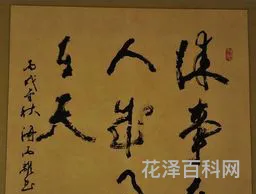 谋事
人成
在天
丙戌年秋
花泽百科网